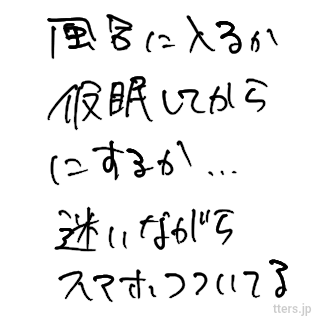 風呂に入るか
仮眠してから
にするか…
迷いながら
スマホつついてる
tters.jp